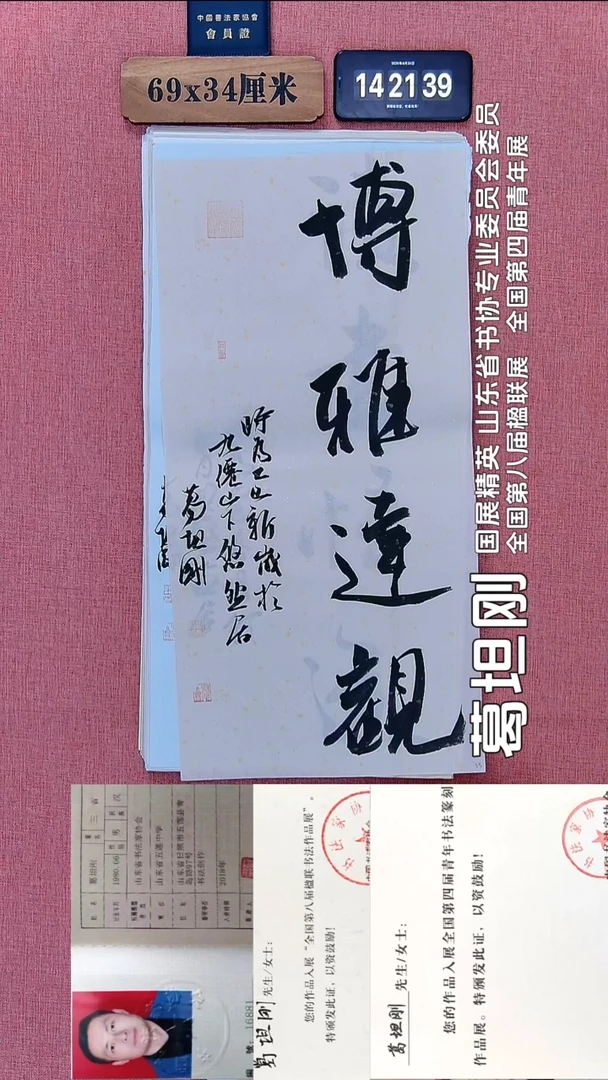 中國書法家協會
會員證
69x34厘米
14 21 39
博雅達觀
時為乙巳新歲於
九僊山下悠然居
葛坦剛
葛坦刚
国展精英 山东省书协专业委员会委员
全国第八届楹联展 全国第四届青年展
山东省书法家协会
山东省五莲中学
书法创作
2018年
葛坦刚 先生/女士:
您的作品入展“全国第八届楹联书法作品展”。
特颁发此证,以资鼓励!
葛坦刚 先生/女士:
您的作品入展全国第四届青年书法篆刻
作品展。特颁发此证,以资鼓励!